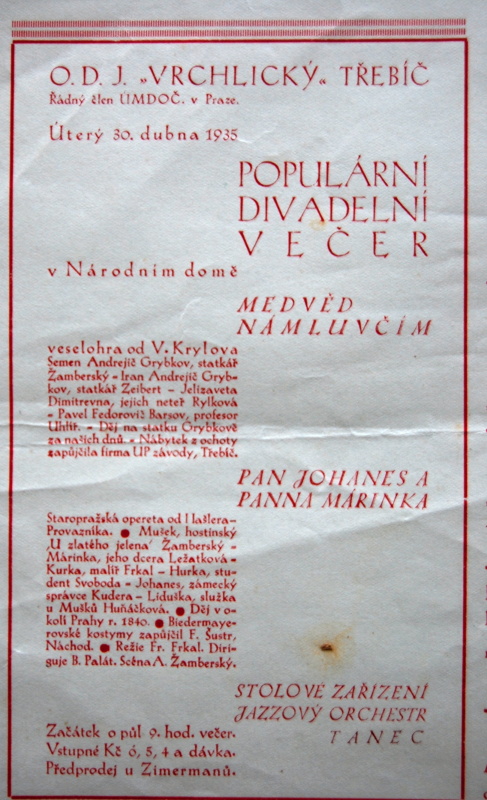 O. D. J. „VRCHLICKÝ“ TŘEBÍČ
Řádný člen ÚMDOČ. v Praze.
Úterý 30. dubna 1935
POPULÁRNÍ
DIVADELNÍ
VEČER
v Národním domě
MEDVĚD
NÁMLUVČÍM
veselohra od V. Krylova
Semen Andrejič Grybkov, statkář
Žamberský - Iran Andrejič Gryb-
kov, statkář Zeibert - Jelizaveta
Dimitrevna, jejich neteř Rylková
- Pavel Fedorovič Barsov, profesor
Uhlíř. - Děj na statku Grybkově
za našich dnů. - Nábytek z ochoty
zapůjčila firma UP závody, Třebíč.
PAN JOHANES A
PANNA MÁRINKA
Staropražská opereta od Hašlera-
Provazníka. ● Mušek, hostinský
‚U zlatého jelena‘ Žamberský -
Márinka, jeho dcera Ležatková -
Kurka, malíř Frkal - Hurka, stu-
dent Svoboda - Johanes, zámecký
správce Kudera - Liduška, služka
u Mušků Huňáčková. ● Děj v o-
kolí Prahy r. 1840. ● Biedermaye-
rovské kostymy zapůjčil F. Šustr,
Náchod. ● Režie Fr. Frkal. Diri-
guje B. Palát. Scéna A. Žamberský.
STOLOVÉ ZAŘÍZENÍ
JAZZOVÝ ORCHESTR
TANEC
Začátek o půl 9. hod. večer.
Vstupné Kč 6, 5, 4 a dávka.
Předprodej u Zimermanů.